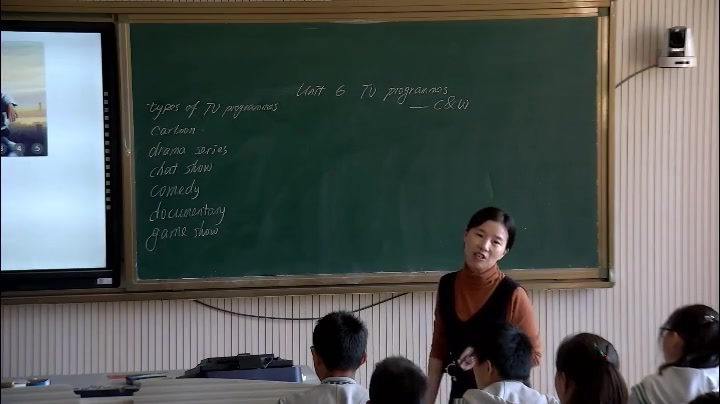 Unit 6 TV programmes
— C&W
types of TV programmes
cartoon
drama series
chat show
comedy
documentary
game show